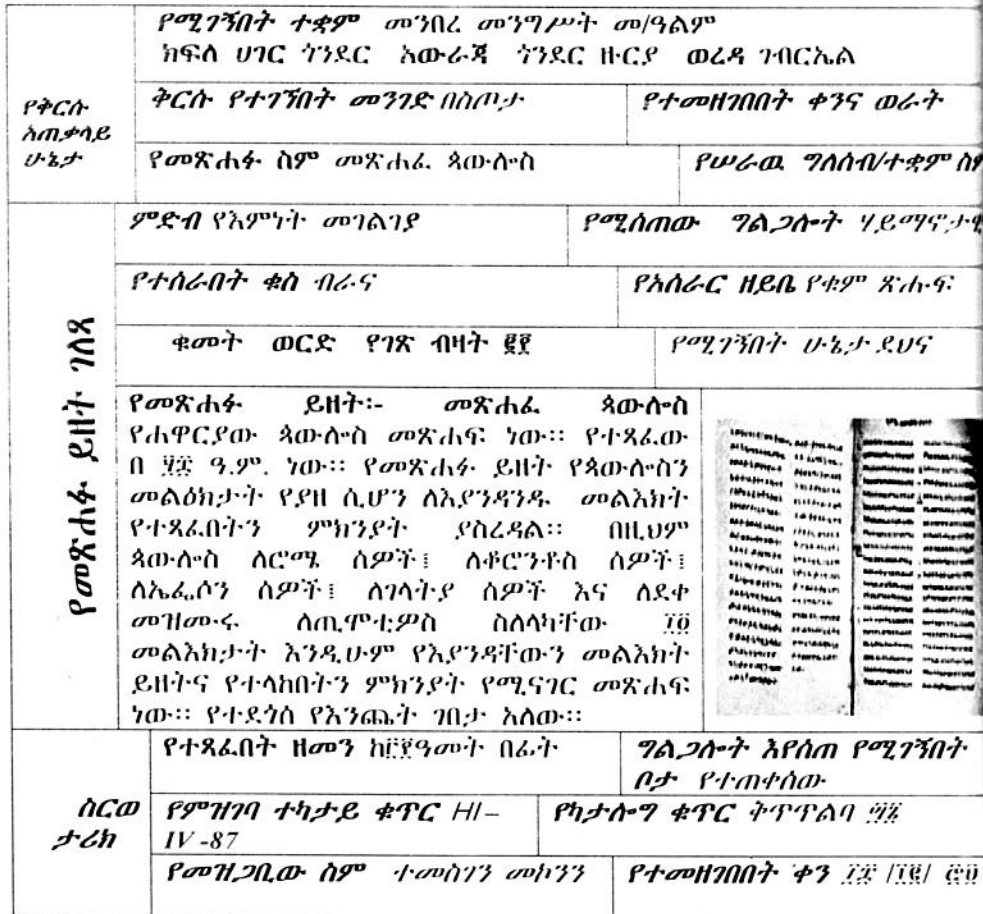 የሚገኝበት ተቋም መንበረ መንግሥት መ/ዓልም
ክፍለ ሀገር ጎንደር አውራጃ ጎንደር ዙርያ ወረዳ ገብርኤል
የቅርሱ
አጠቃላይ
ሁኔታ
ቅርሱ የተገኘበት መንገድ በስጦታ
የተመዘገበበት ቀንና ወራት
የመጽሐፉ ስም መጽሐፈ ጳውሎስ
የሠራዉ ግለሰብ/ተቋም
የመጽሐፉ ይዘት ገለጻ
ምድብ የእምነት መገልገያ
የሚሰጠው ግልጋሎት
የተሰራበት ቁስ ብራና
የአሰራር ዘይቤ የቁም ጽሑፍ
ቁመት ወርድ የገጽ ብዛት
የሚገኝበት ሁኔታ ደህና
የመጽሐፉ ይዘት፡- መጽሐፈ ጳውሎስ
የሐዋርያው ጳውሎስ መጽሐፍ ነው። የተጻፈው
በ ዓ.ም. ነው። የመጽሐፉ ይዘት የጳውሎስን
መልዕክታት የያዘ ሲሆን ለእያንዳንዱ መልእክት
የተጻፈበትን ምክንያት ያስረዳል። በዚህም
ጳውሎስ ለሮሜ ሰዎች፤ ለቆሮንቶስ ሰዎች፤
ለኤፌሶን ሰዎች፤ ለገላትያ ሰዎች እና ለደቀ
መዝሙሩ ለጢሞቲዎስ ስለላካቸው ፲፬
መልእክታት እንዲሁም የእያንዳቸውን መልእክት
ይዘትና የተላከበትን ምክንያት የሚናገር መጽሐፍ
ነው። የተደጎሰ የእንጨት ገበታ አለው።
ስርወ
ታሪክ
የተጻፈበት ዘመን በፊት
ግልጋሎት እየሰጠ የሚገኝበት
ቦታ የተጠቀሰው
የምዝገባ ተካታይ ቁጥር HI–
IV -87
የካታሎግ ቁጥር ቅጥጥልባ
የመዝጋቢው ስም ተመስገን መኮንን
የተመዘገበበት ቀን